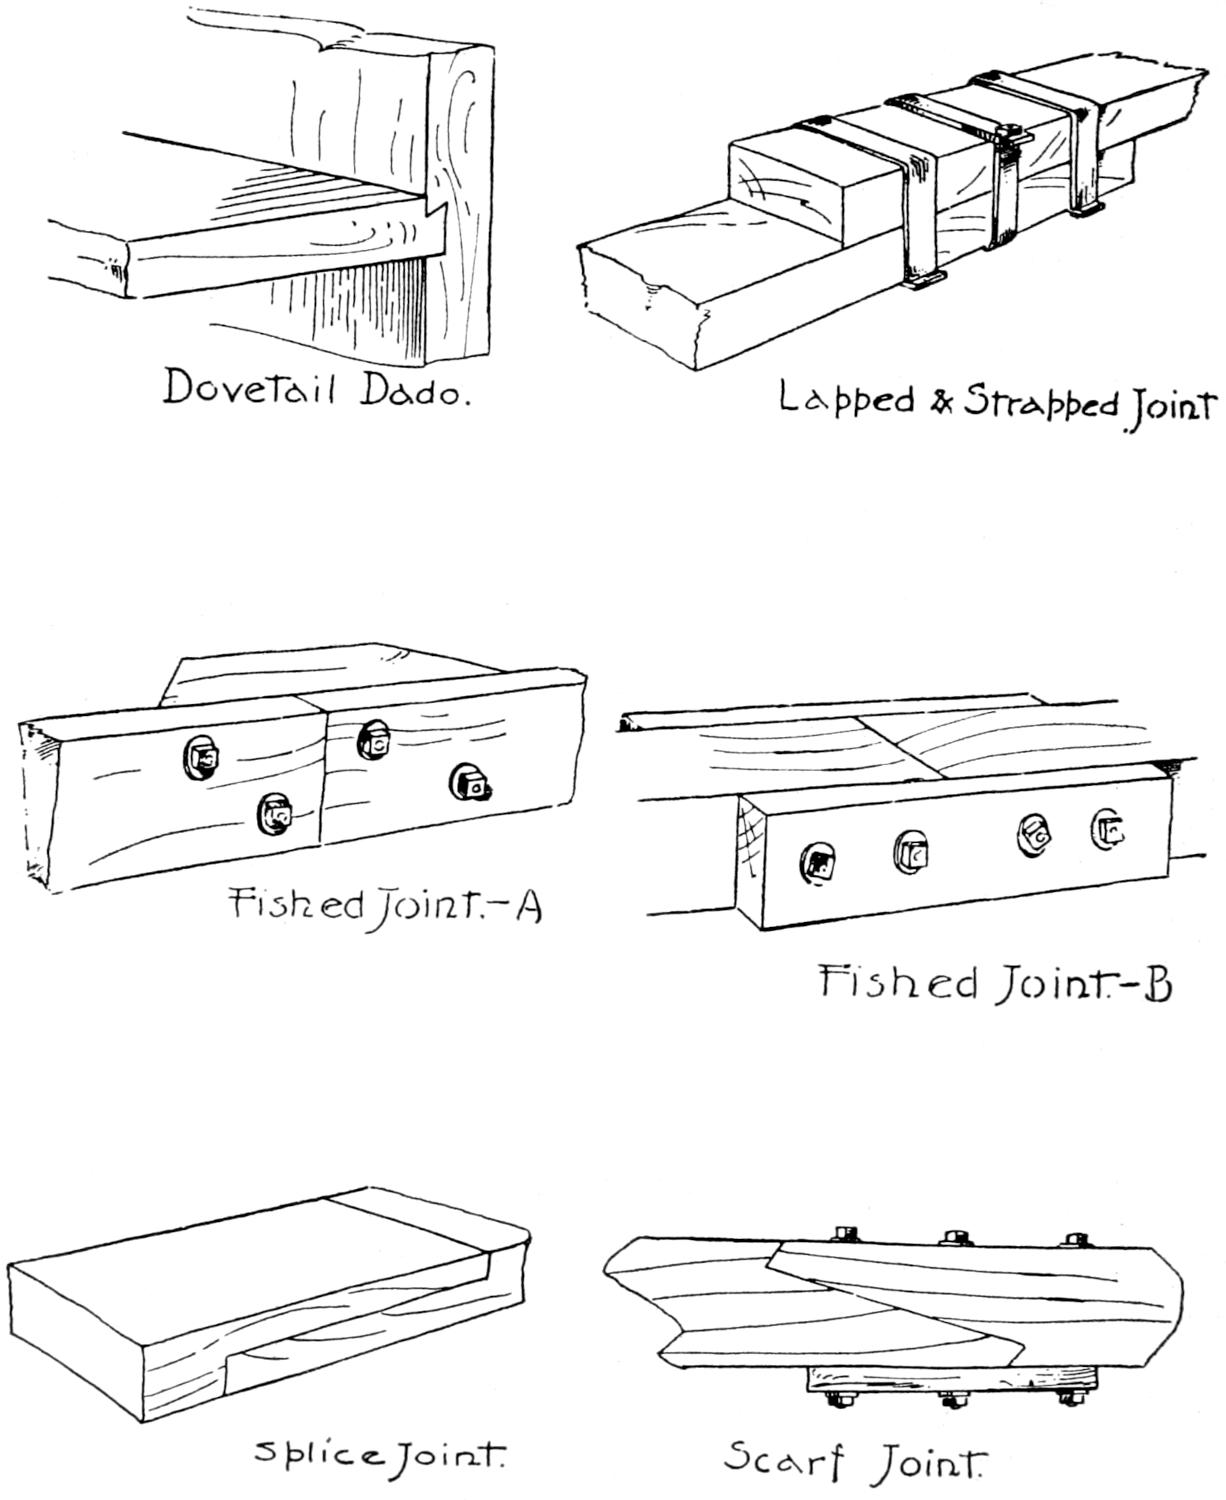 Dovetail Dado.
Lapped & Strapped Joint
Fished Joint.-A
Fished Joint.-B
Splice Joint.
Scarf Joint.